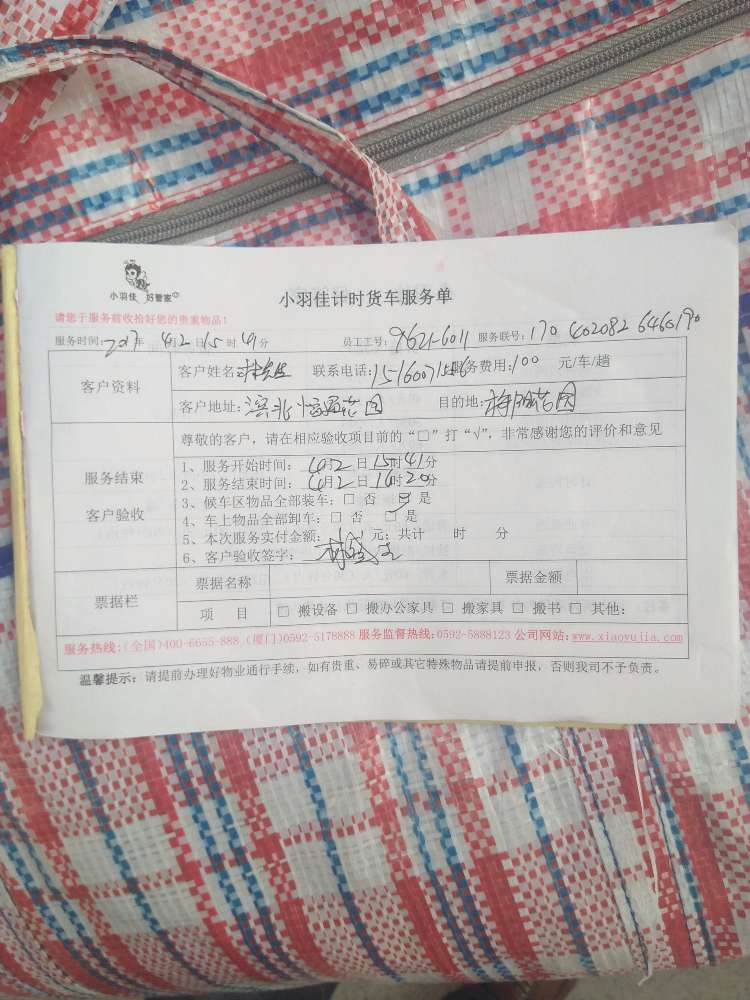 小羽佳 好管家
小羽佳计时货车服务单
请您于服务前收拾好您的贵重物品！
服务时间：2017年 4月2日15时41分 员工工号：9621-6011 服务联号：170 402082 6460190
客户资料 客户姓名： 联系电话： 服务费用：100 元/车/趟
客户地址：滨北 花园 目的地： 花园
尊敬的客户，请在相应验收项目前的“□”打“√”，非常感谢您的评价和意见
服务结束
客户验收
1、服务开始时间：4月2日15时41分
2、服务结束时间：4月2日16时20分
3、候车区物品全部装车：□ 否 □ 是
4、车上物品全部卸车：□ 否 □ 是
5、本次服务实付金额： 元；共计 时 分
6、客户验收签字：
票据栏 票据名称 票据金额
项 目 □ 搬设备 □ 搬办公家具 □ 搬家具 □ 搬书 □ 其他：
服务热线：(全国)400-6655-888 (厦门)0592-5178888 服务监督热线：0592-5888123 公司网站：www.xiaoyujia.com
温馨提示：请提前办理好物业通行手续，如有贵重、易碎或其它特殊物品请提前申报，否则我司不予负责。